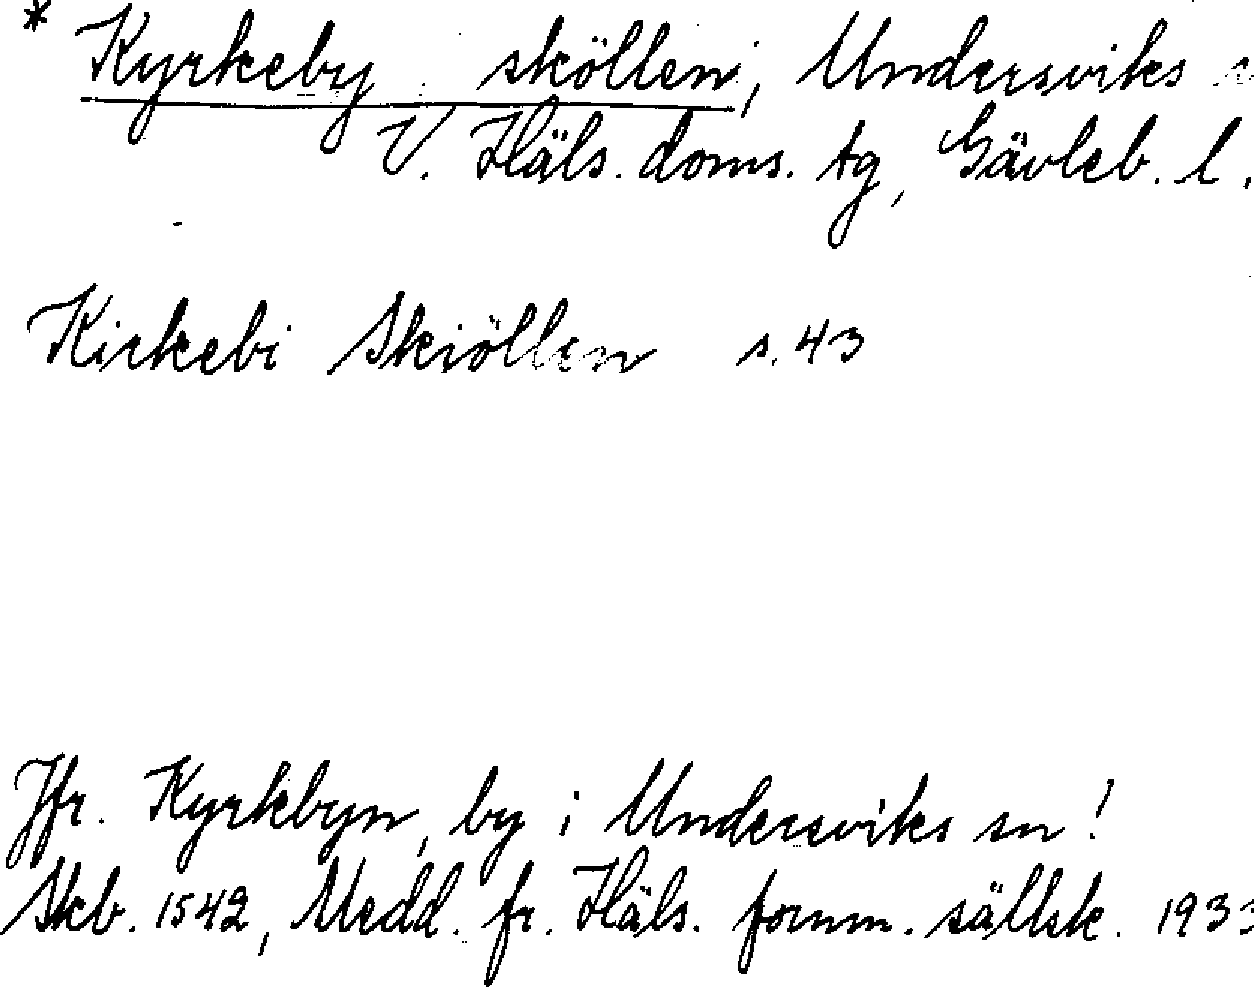 * Kyrkeby sköllen, Undersviks
V. Häls. doms. tg, Gävleb. l.
Kirkebi Skiöllen s. 43
Jfr. Kyrkbyn, by i Undersviks sn!
Skb. 1542, Medd. fr. Häls. fornm. sällsk. 1933